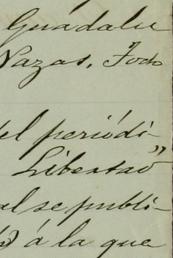 Guadalu
Nazas, Todo
del periódi-
Libertad"
al se publi-
á la que